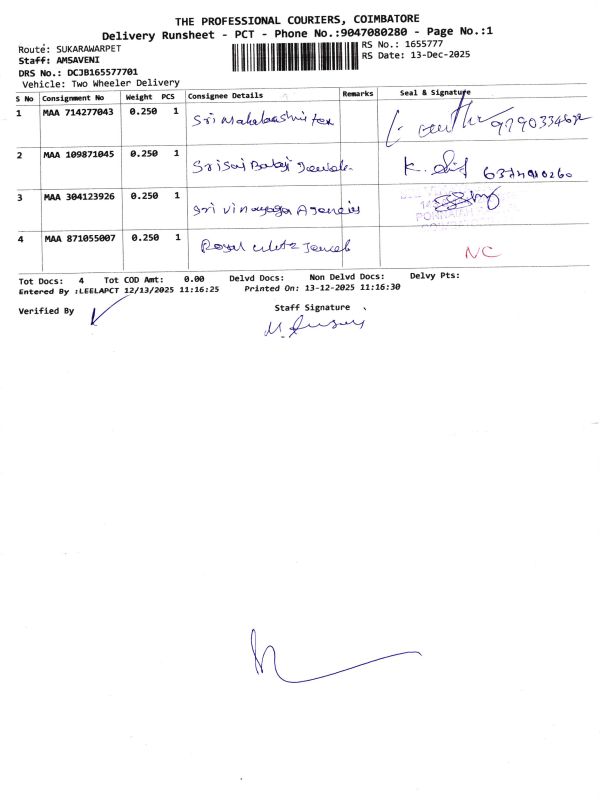 THE PROFESSIONAL COURIERS, COIMBATORE
Delivery Runsheet - PCT - Phone No.:9047080280 - Page No.:1
Route: SUKARAWARPET RS No.: 1655777
Staff: AMSAVENI RS Date: 13-Dec-2025
DRS No.: DCJB165577701
Vehicle: Two Wheeler Delivery
S No Consignment No Weight PCS Consignee Details Remarks Seal & Signature
1 MAA 714277043 0.250 1 Sri Mahalaashmi tex
2 MAA 109871045 0.250 1 Sri Sai Balaji K. 6374910260
3 MAA 304123926 0.250 1 Sri Vinayaga Agencies
4 MAA 871055007 0.250 1 Royal NC
Tot Docs: 4 Tot COD Amt: 0.00 Delvd Docs: Non Delvd Docs: Delvy Pts:
Entered By :LEELAPCT 12/13/2025 11:16:25 Printed On: 13-12-2025 11:16:30
Verified By Staff Signature